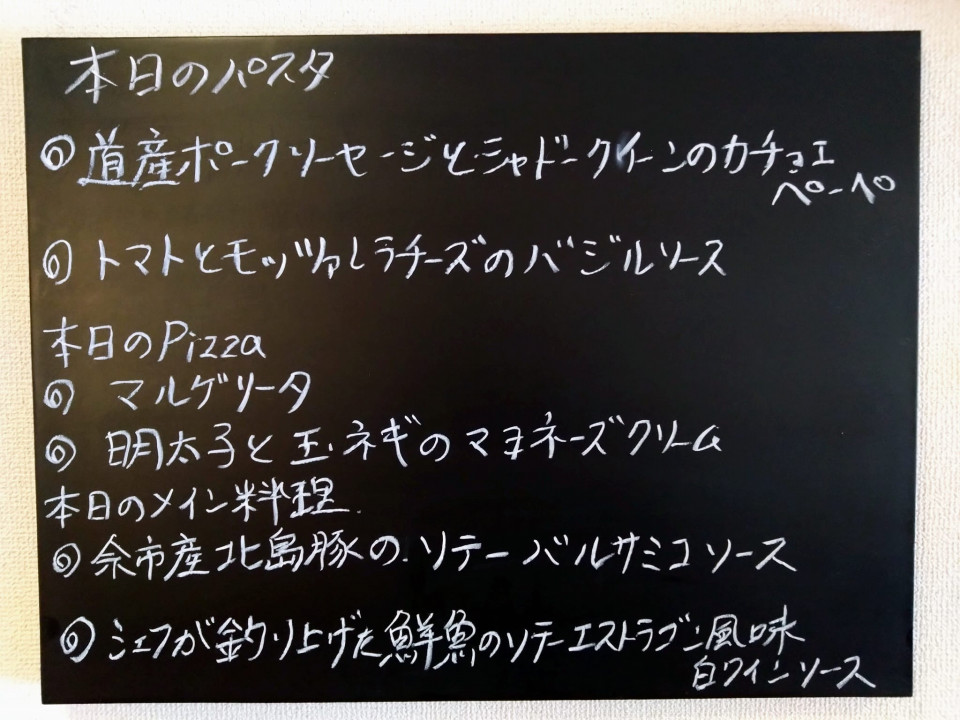 本日のパスタ
◎道産ポークソーセージとシャドークイーンのカチョエ
ペーペ
◎トマトとモッツァレラチーズのバジルソース
本日のPizza
◎マルゲリータ
◎明太子と玉ネギのマヨネーズクリーム
本日のメイン料理
◎余市産北島豚のソテーバルサミコソース
◎シェフが釣り上げた鮮魚のソテーエストラゴン風味
白ワインソース